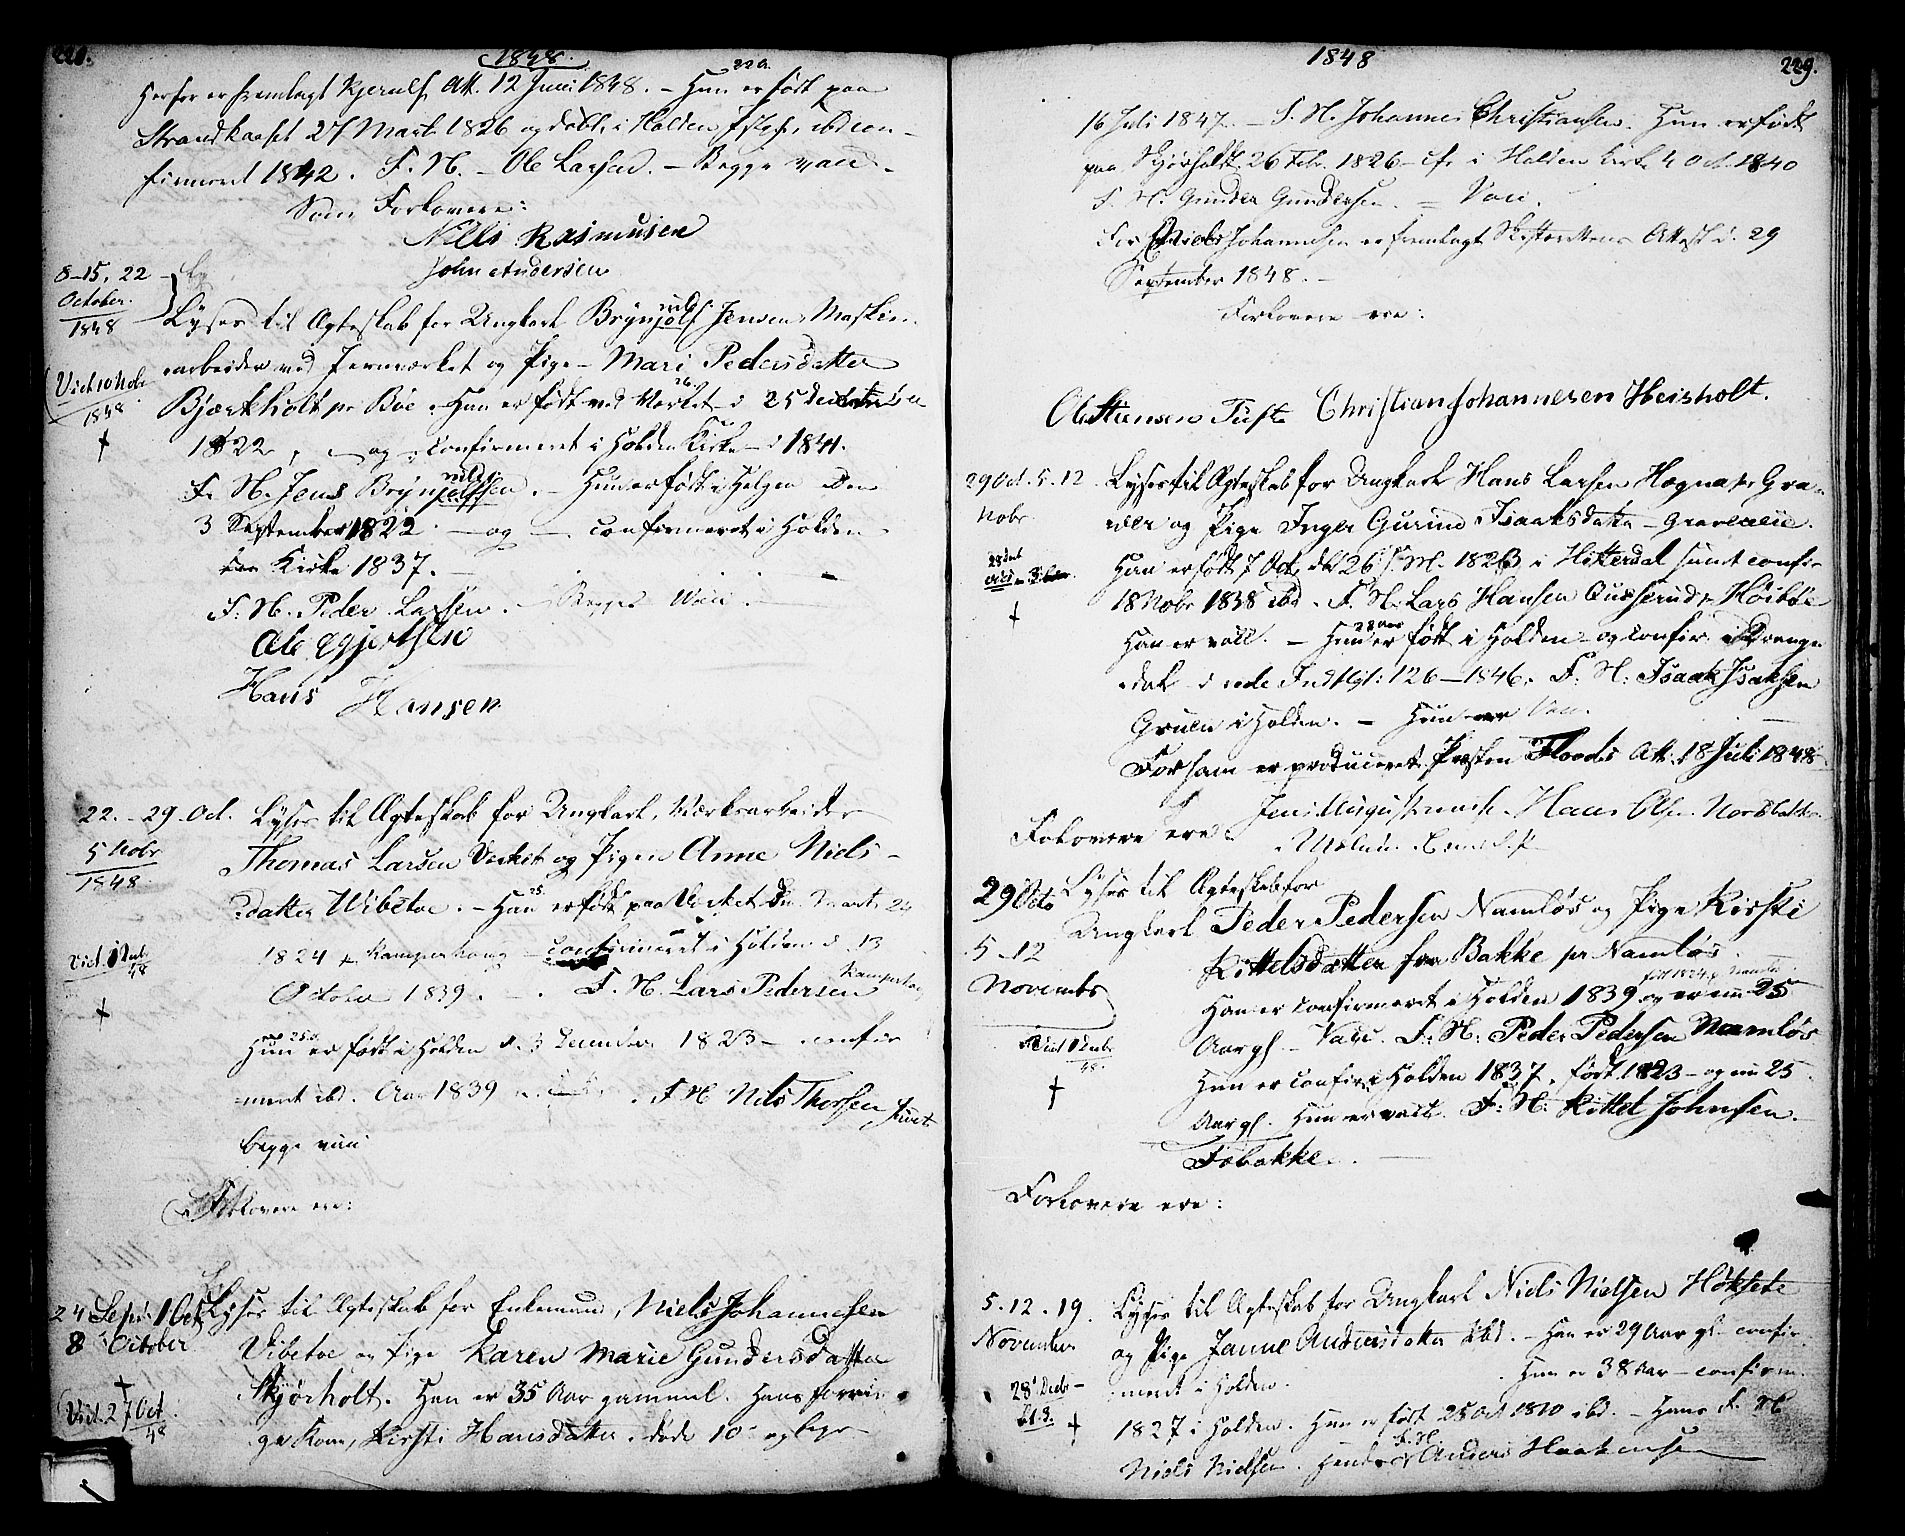 1848.
Herfor er fremlagt Kjerulfs Att. 12 Juni 1848. – Hun er født paa
Strandkaaset 27 Marts 1826 og døbt i Holden ibd con-
firmeret 1842. F. N. – Ole Larsen. – Begge vacc.
Som Forlovere:
Nills Rasmusen
John Andersen
8–15, 22
October.
1848
Lyses til Ægteskab for Ungkarl Brynjolf Jensen, Maskin-
arbeider ved Jernværket og Pige – Mari Pedersdatter
Viet 10 Nobr
1848
Bjærkholt pr Bøe. Han er født ved Værket d 25 december
1822, og confirmeret i Holden Kirke – i 1841.
F. N. Jens Brynjolfsen. – Hun er født i Helgen den
3 September 1822 – og – confirmeret i Holden
Kirke 1837. –
F. N. Peder Larsen. – Begge Vacc.
Ole Egjertsen
Hans Hansen
22. – 29. Oct.
5 Nobr
1848.
Lyses til Ægteskab for Ungkarl, Værksarbeider
Thomas Larsen Værket og Pigen Anne Niels-
datter Wibetoe. – Han er født paa Værket d. Marts 24
Viet 1 Decbr
48
1824 Kamperhoug – confirmeret i Holden d. 13
October 1839. – F. N. Lars Pedersen Kamperhoug
Hun er født i Holden d. 3 December 1823 – confir
meret ibd. Aar 1839 F N Nils Thorsen
begge vacc
Forlovere ere:
24 Sept: 1 Oct
8 October
Lyses til Ægteskab for Enkemand, Niels Johannesen
Vibetoe og Pige Karen Marie Gundersdatter
Skjørholt. Han er 35 Aar gammel. Hans forri-
Viet. 27 Oct.
48
ge Kone, Kirsti Hansdatter. døde 10
1848
229.
16 Juli 1847. – F. N. Johannes Christiansen. Hun er født
paa Skjørholdt 26 Febr. 1826 – cfr i Holden Kirke 4 Oct. 1840
F. N. Gunder Gundersen. – Vacc.
For Niels Johannesen er fremlagt Skifterettens Attest d. 29
September 1848. –
Forlovere ere:
Ole Hansen Tufte Christian Johannesen Heisholt.
29 Oct. 5. 12
Nobr
Lyses til Ægteskab for Ungkarl Hans Larsen Hægna pr Gra-
ver og Pige Inger Gurine Isaaksdatter – Graver
Han er født 7 Oct, dbt 26 s. M. 1823 i Hitterdal samt confir
18 Nobr 1838 ibd. F. N. Lars Hansen Høibøe
Han er vacc. – Hun er født i Holden – og confir. i Drange-
dal – 1846. F: N: Isaak Isaksen
Gruen i Holden. – Hun er Vacc.
For ham er produceret Presten Floods Att. 18 Juli 1848
Forlovere ere
29 Octo
5. 12
November
Lyses til Ægteskab for
Ungkarl Peder Pedersen Namløs og Pige Kirsti
Kittelsdatter fra Bakke pr Namløs.
født 1824 p. Namløs
Han er confirmeret i Holden 1839 og er nu 25
Aar gl – Vacc. F: N: Peder Pedersen Namløs
Viet 1 Decbr
48.
Hun er confir i Holden 1837, født 1823 – og nu 25
Aar gl. Hun er vacc. F: N: Kittel Johnsen
Fobakke.
Forlovere ere:
5. 12. 19.
November
Lyses til Ægteskab for Ungkarl Niels Nielsen Høksete
og Pige Janne Andersdatter ibd. – Han er 29 Aar gl – confir-
28 Decbr
meret i Holden. Hun er 38 Aar – confirm.
1827 i Holden. Hun er født 25 Oct 1810 ibd. – Hans F. N
Niels Nielsen. Hendes F. N. Anders Haakensen